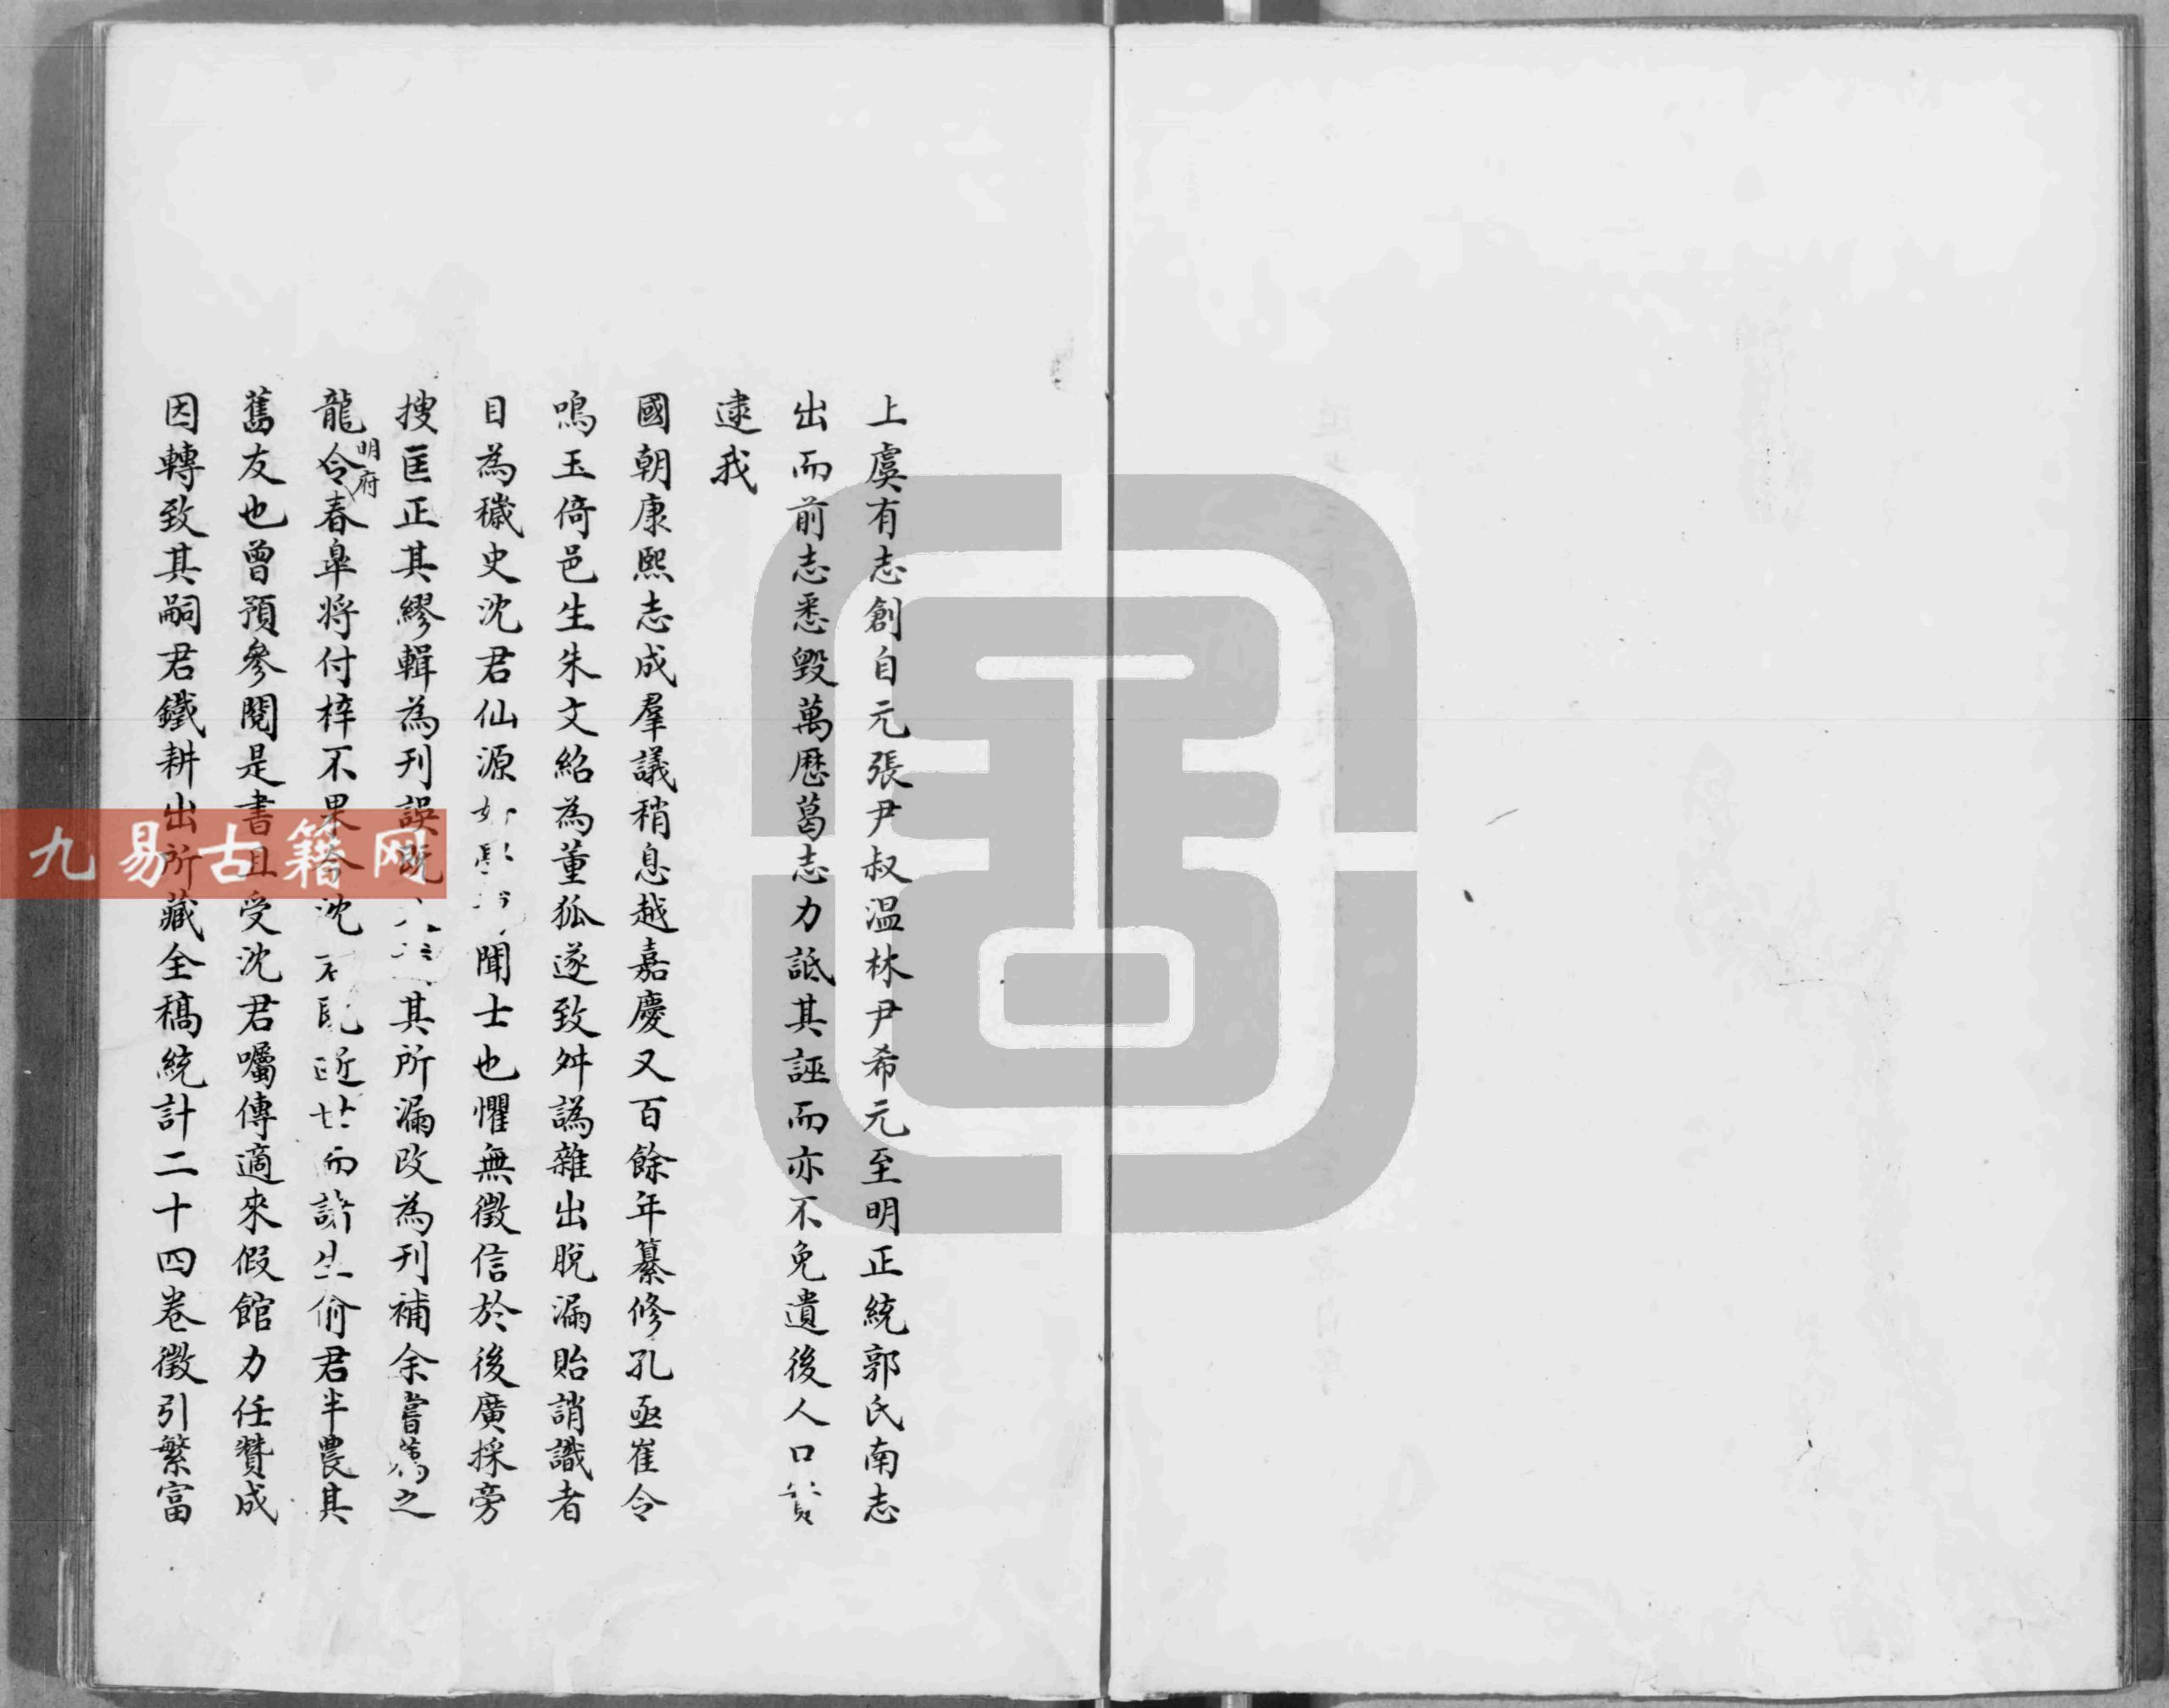 上虞有志創自元張尹叔温林尹希元至明正統郭氏南志
出而前志悉毀萬歷葛志力詆其誣而亦不免遺後人口
逮我
國朝康熙志成羣議稍息越嘉慶又百餘年纂修孔亟崔令
鳴玉倚邑生朱文紹為董狐遂致舛譌雜出脫漏貽誚識者
目為穢史沈君仙源 聞士也懼無徵信於後廣採旁
搜匡正其繆輯為刊誤既 其所漏改為刊補余嘗 之
龍令明府春皐將付梓不果今沈 近 而 俞君半農其
舊友也曾預參閱是書且受沈君囑傳適來假館力任贊成
因轉致其嗣君鐵耕出所藏全稿統計二十四卷徵引繁富
九易古籍网